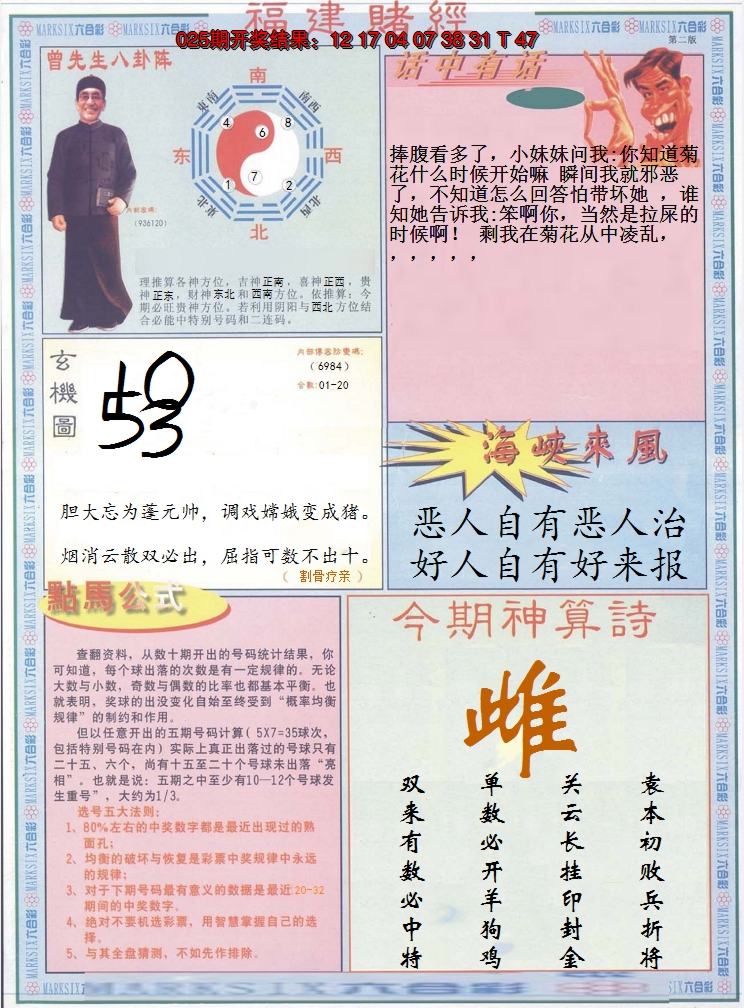 福建賭經
025期开奖结果：12 17 04 07 38 31 T 47
第二版
曾先生八卦阵
南
东南
南西
东
西
4
8
6
7
1
2
東北
北西
北
内部密碼:
(936120)
理推算各神方位，吉神正南，喜神正西，贵
神正东，财神东北和西南方位。依推算：今
期必旺贵神方位。若利用阴阳与西北方位结
合必能中特别号码和二连码。
话中有话
捧腹看多了，小妹妹问我:你知道菊
花什么时候开始嘛 瞬间我就邪恶
了，不知道怎么回答怕带坏她 ，谁
知她告诉我:笨啊你，当然是拉屎的
时候啊！ 剩我在菊花从中凌乱，
，，，，，
玄機圖
内部傳密防密碼:
(6984)
合数:01-20
53
胆大忘为蓬元帅，调戏嫦娥变成猪。
烟消云散双必出，屈指可数不出十。
（ 割骨疗亲 ）
海峽來風
恶人自有恶人治
好人自有好来报
點馬公式
查翻资料，从数十期开出的号码统计结果，你
可知道，每个球出落的次数是有一定规律的。无论
大数与小数，奇数与偶数的比率也都基本平衡。也
就表明，奖球的出没变化自始至终受到“概率均衡
规律”的制约和作用。
但以任意开出的五期号码计算( 5X7=35球次，
包括特别号码在内) 实际上真正出落过的号球只有
二十五、六个，尚有十五至二十个号球未出落“亮
相”。也就是说：五期之中至少有10—12个号球发
生重号”，大约为1/3。
选号五大法则：
1、80%左右的中奖数字都是最近出现过的熟
面孔；
2、均衡的破坏与恢复是彩票中奖规律中永远
的规律；
3、对于下期号码最有意义的数据是最近20-32
期间的中奖数字。
4、绝对不要机选彩票，用智慧掌握自己的选
择。
5、与其全盘猜测，不如先作排除。
今期神算詩
雌
袁本初败兵折将
关云长挂印封金
单数必开羊狗鸡
双来有数必中特
MARKSIX六合彩